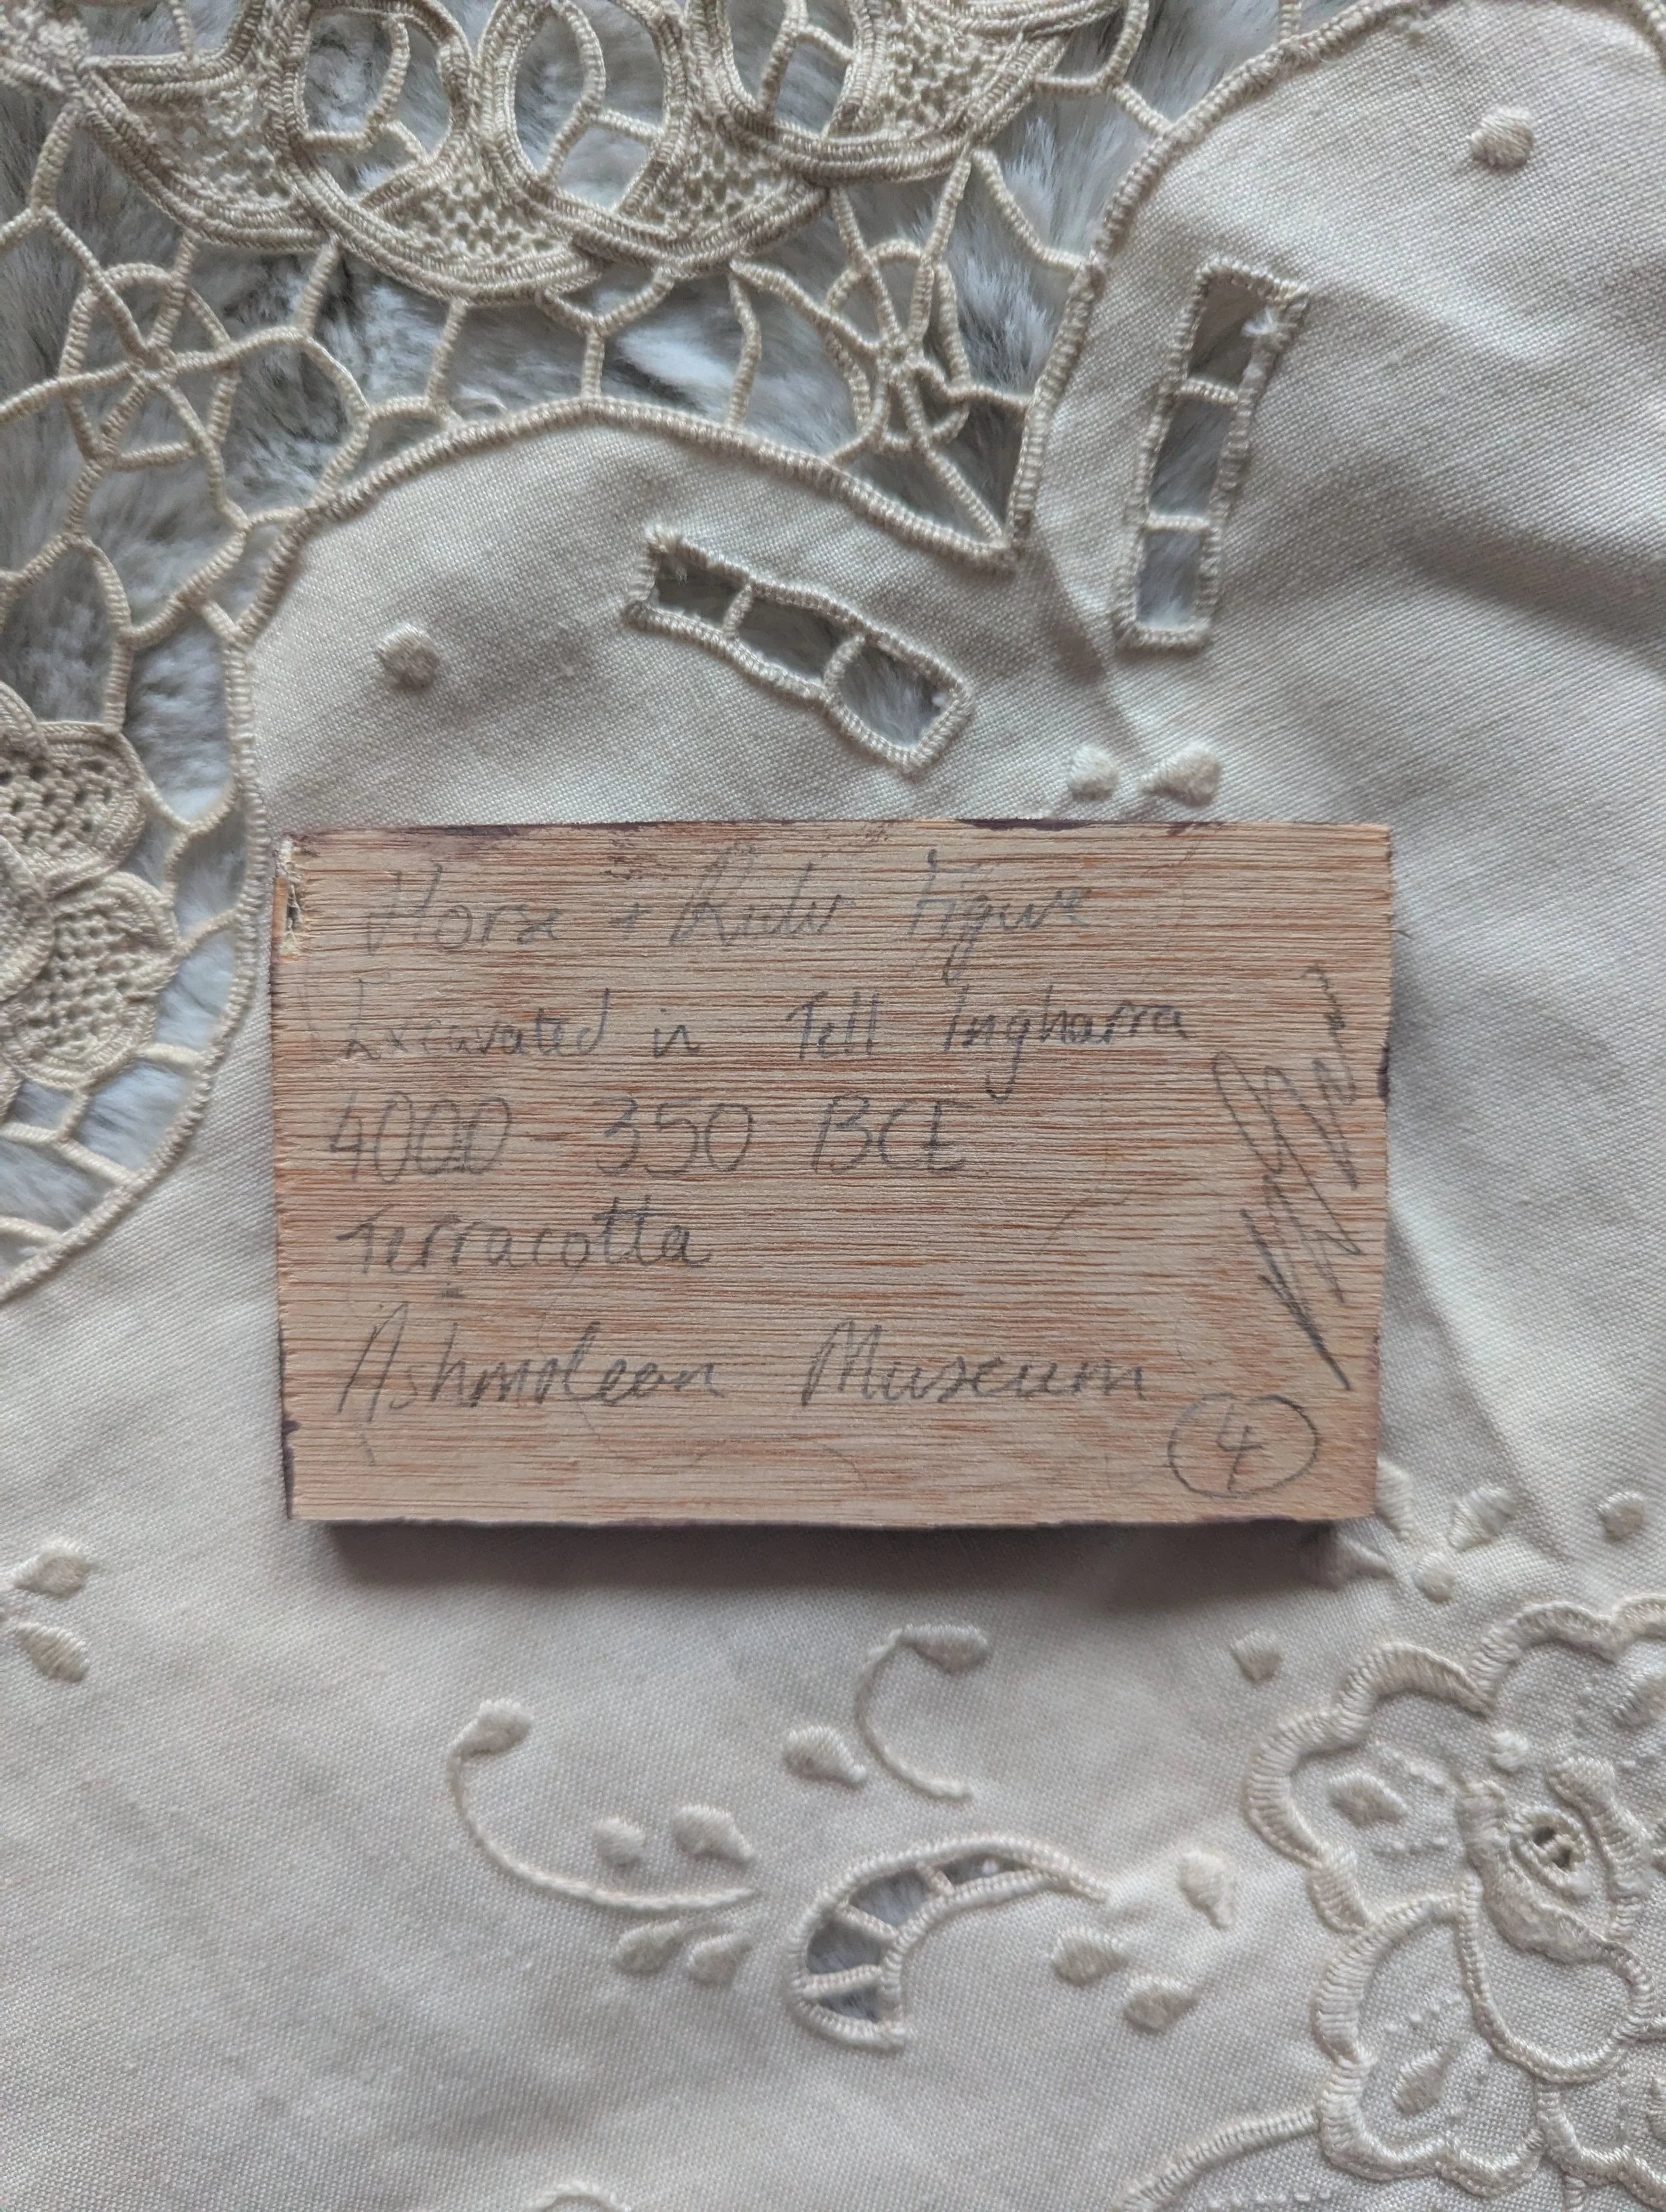 Horse + Rider Figure
Excavated in Tell Ingharra
4000 - 350 BCE
Terracotta
Ashmolean Museum
4